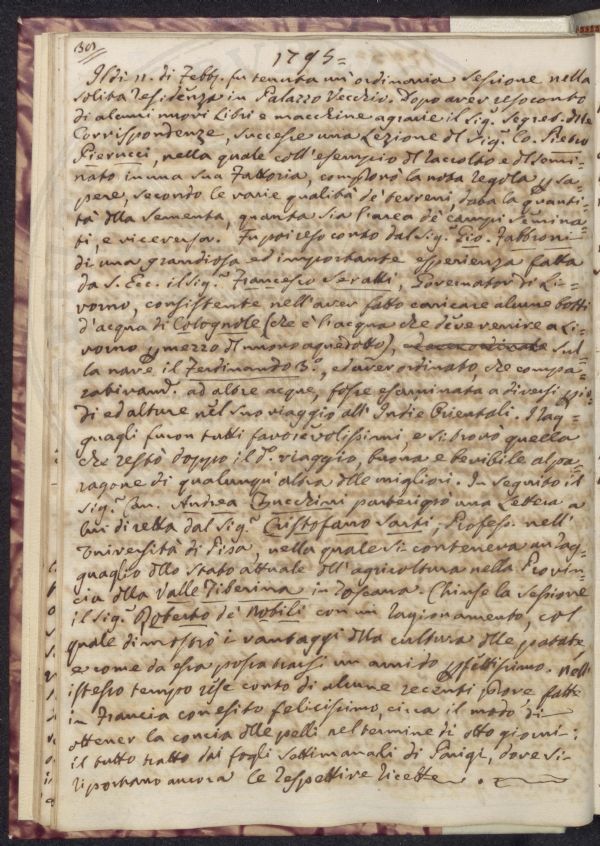 301
1795=
Il dì 11. di Febb. fu tenuta un'ordinaria Sessione nella
solita residenza in Palazzo Vecchio. Dopo aver reso conto
di alcuni nuovi Libri e macchine agrarie il Sig. Segret. delle
Corrispondenze, successe una Lezione del Sig. Co. Pietro
Pierucci, nella quale coll'esempio del raccolto e del semi-
nato in una sua Fattoria, comprovò la nota regola per sa-
pere, secondo le varie qualità de' terreni, data la quanti-
tà della sementa, quanta sia l'area de' campi semina-
ti, e viceversa. Fu poi reso conto dal Sig. Gio. Fabbroni
di una grandiosa ed importante esperienza fatta
da S. Ecc. il Sig. Francesco Seratti, Governator di Li-
vorno, consistente nell'aver fatto caricare alcune botti
d'acqua di Colognole (che è l'acqua che deve venire a Li-
vorno per mezzo del nuovo aquedotto), sul-
la nave il Ferdinando 3°, ed aver ordinato, che compa-
rativam. ad altre acque, fosse esaminata a diversi gra-
di ed alture nel suo viaggio all'Indie Orientali. I rag-
guagli furon tutti favorevolissimi, e si trovò quella
che restò doppo il d.° viaggio, buona e bevibile al pa-
ragone di qualunqu'altra delle migliori. In seguito il
Sig. Can. Andrea Zucchini partecipò una Lettera a
lui diretta dal Sig. Cristofano Sarti, Profess. nell'
Università di Pisa, nella quale si conteneva un rag-
guaglio dello stato attuale dell'agricoltura nella Provin-
cia della Valle Tiberina in Toscana. Chiuse la sessione
il Sig. Roberto de' Nobili con un ragionamento, col
quale dimostrò i vantaggi della cultura delle patate
e come da essa possa trarsi un amido perfettissimo. Nell'
istesso tempo rese conto di alcune recenti prove fatte
in Francia con esito felicissimo, circa il modo di
ottener la concia delle pelli nel termine di otto giorni:
il tutto tratto dai fogli settimanali di Parigi, dove si
riportano ancora le respettive ricette.